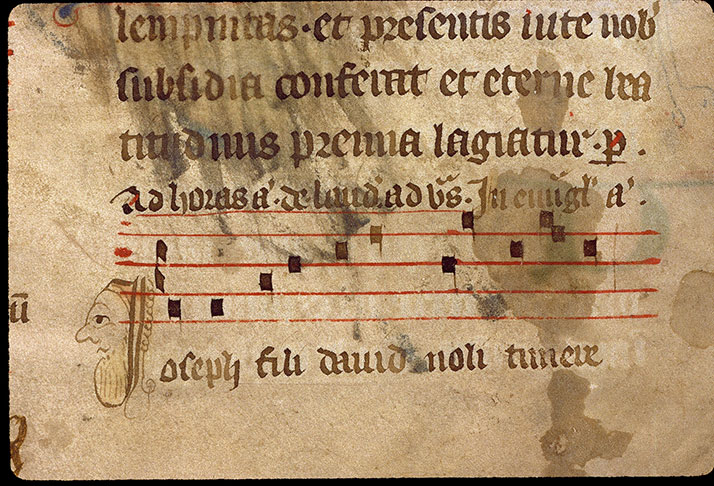 sempiternitas · et presentis uite nob̄
subsidia conferat et eterne bea
titudinis premia largiatur · p̄ .
Ad horas a̓ · de laud̓ . ad ūs · In eūgł a̓ .
Joseph fili dauid noli timere